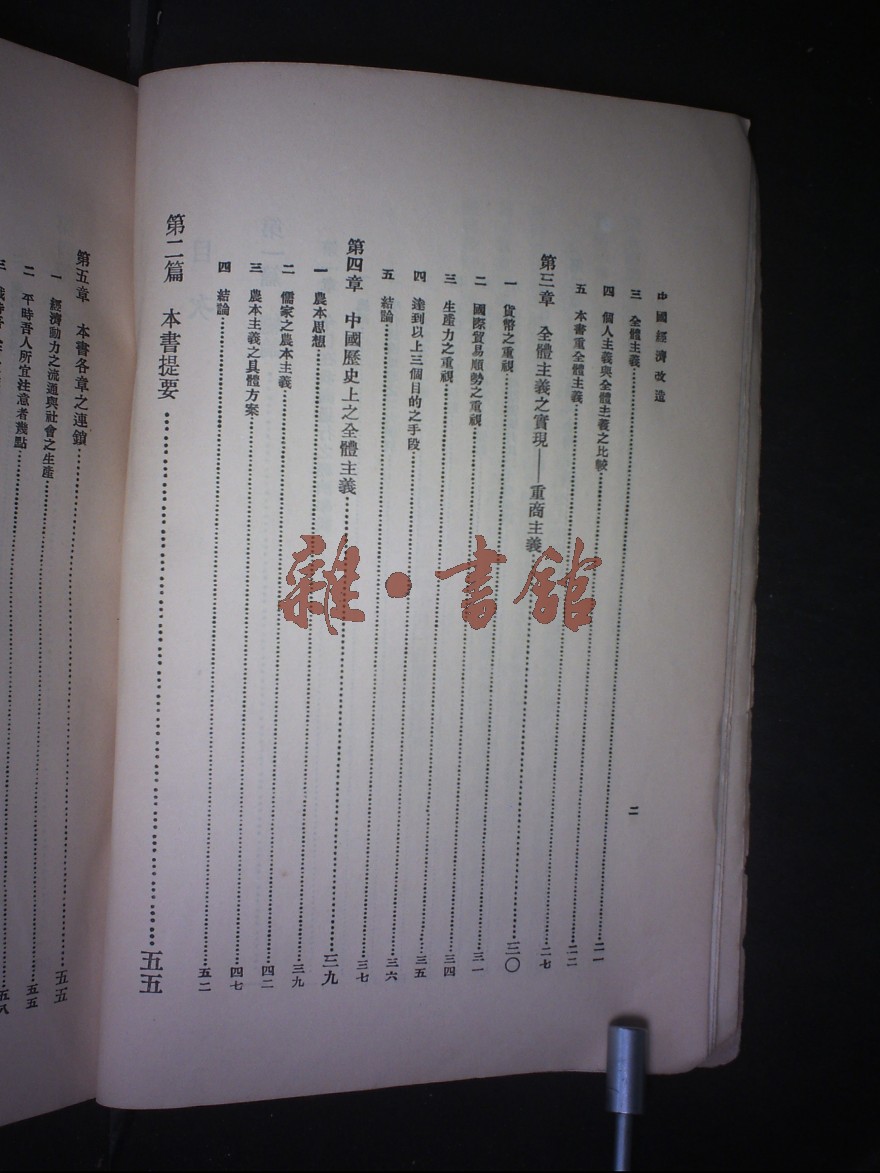 中國經濟改造
二
三 全體主義……二一
四 個人主義與全體主義之比較……二二
五 本書重全體主義……二七
第三章 全體主義之實現——重商主義……三〇
一 貨幣之重視……三一
二 國際貿易順勢之重視……三四
三 生產力之重視……三五
四 達到以上三個目的之手段……三六
五 結論……三七
第四章 中國歷史上之全體主義……三九
一 農本思想……三九
二 儒家之農本主義……四二
三 農本主義之具體方案……四七
四 結論……五二
第二篇 本書提要……五五
第五章 本書各章之連鎖……五五
一 經濟動力之流通與社會之生產……五五
二 平時吾人所宜注意者幾點……五八
三
雜·書館